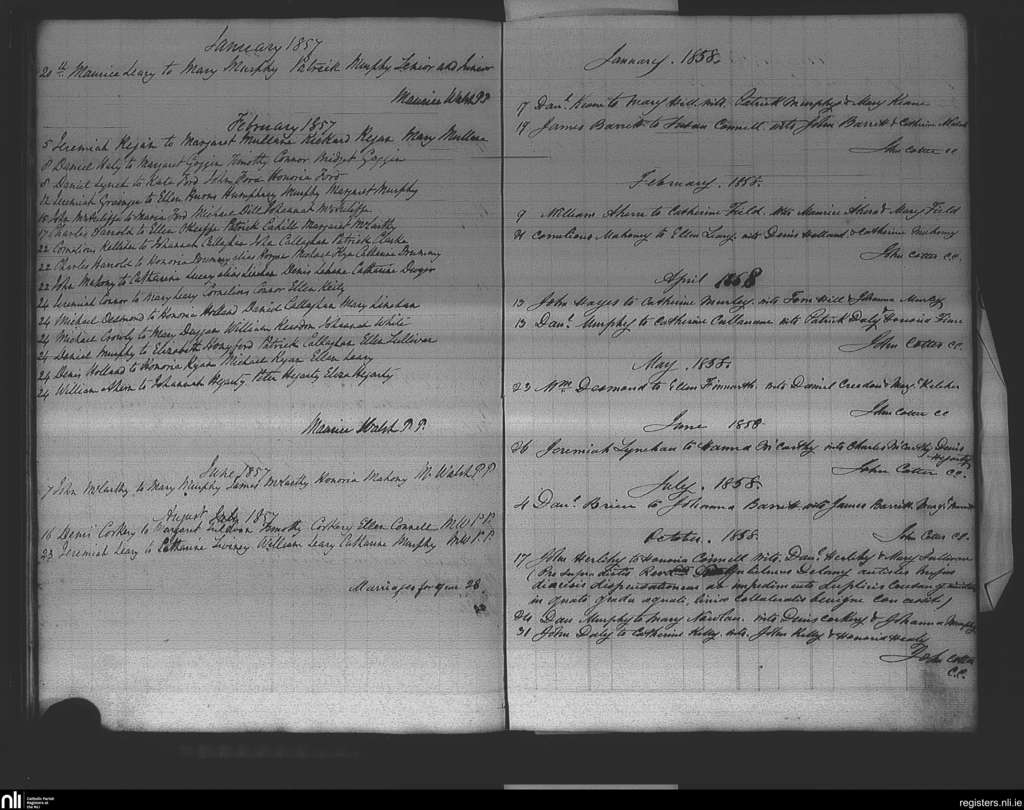 January 1857
20th. Maurice Leary to Mary Murphy Patrick Murphy Senior and Junior
Maurice Walsh P.P
February 1857
5 Jeremiah Regan to Margaret Mullane Richard Ryan Mary Mullane
8 Daniel Haly to Margaret Goggin Timothy Connor Bridget Goggin
8 Daniel Lynch to Kate Ford John Ford Honoria Ford
12 Jeremiah to Ellen Humphrey Murphy Margaret Murphy
15 John McAuliffe to Maria Ford Michael Dill Johannah McAuliffe
17 Charles Harold to Ellen O'Keeffe Patrick Cahill Margaret McCarthy
22 Cornelious Kelleher to Johannah Callaghan John Callaghan Patrick
22 Charles Harold to Honoria Drummy alias Horgan Michael Catherine Drummy
22 John Mahony to Catherine alias Denis Lehane Catherine Dwyer
24 Jeremiah Connor to Mary Leary Cornelius Connor Ellen Reily
24 Michael Desmond to Honora Holland Daniel Callaghan Mary Linehan
24 Michael Crowly to Mary Duggan William Johannah White
24 Daniel Murphy to Elizabeth Patrick Callaghan Ellen Sullivan
24 Denis Holland to Honoria Ryan Michael Ryan Ellen Leary
24 William Ahern to Johannah Hegarty Peter Hegarty Eliza Hegarty
Maurice Walsh P.P.
June 1857
7 John McCarthy to Mary Murphy James McCarthy Honoria Mahony M. Walsh P.P
August July 1857
16 Denis Corkery to Margaret Sullivan Timothy Corkery Ellen Connell M W P P.
23 Jeremiah Leary to Catherine William Leary Catharine Murphy M W P P.
Marriages for year 28
January. 1858.
17 Danl. Keane to Mary Hill. wits. Patrick Murphy & Mary Keane
19 James Barrett to Susan Connell. wits John Barrett & Catherine
John Cotter CC
February. 1858.
9 William Ahern to Catherine Field. wits Maurice Ahern & Mary Field
Cornelious Mahony to Ellen Leary. wits Denis Holland & Catherine Mahony
John Cotter CC.
April 1858
13 John Hayes to Catherine Murley. wits Tom Hill & Johanna Murley
13 Danl. Murphy to Catherine Callanane wits Patrick Daly & Honoria
John Cotter CC.
May. 1858.
23 Wm Desmond to Ellen wits Daniel Creedon & Mary Keleher
John Cotter CC
June 1858
26 Jeremiah Lynehan to Hanna McCarthy wits Charles McCarthy Denis
Hegarty
John Cotter CC.
July. 1858.
4 Danl. Brien to Johanna Barrett wits James Barrett
John Cotter CC.
October. 1858.
17 John Herlihy to Honoria Connell wits. Danl. Herlihy & Mary Sullivan
(Pro supra dictis Gulielmus Delany antistes hujus
diocesis dispensationem ab impedimento duplicis consanguinitatis
in quarto gradu aequali linea collateralis benigne concessit)
24 Dan Murphy to Mary wits Denis Corkery & Johanna Murphy
31 John Daly to Catherine Kelly. wits. John Kelly & Honoria Healy
John Cotter
C.C.
nli
Catholic Parish
Registers at
the NLI
registers.nli.ie